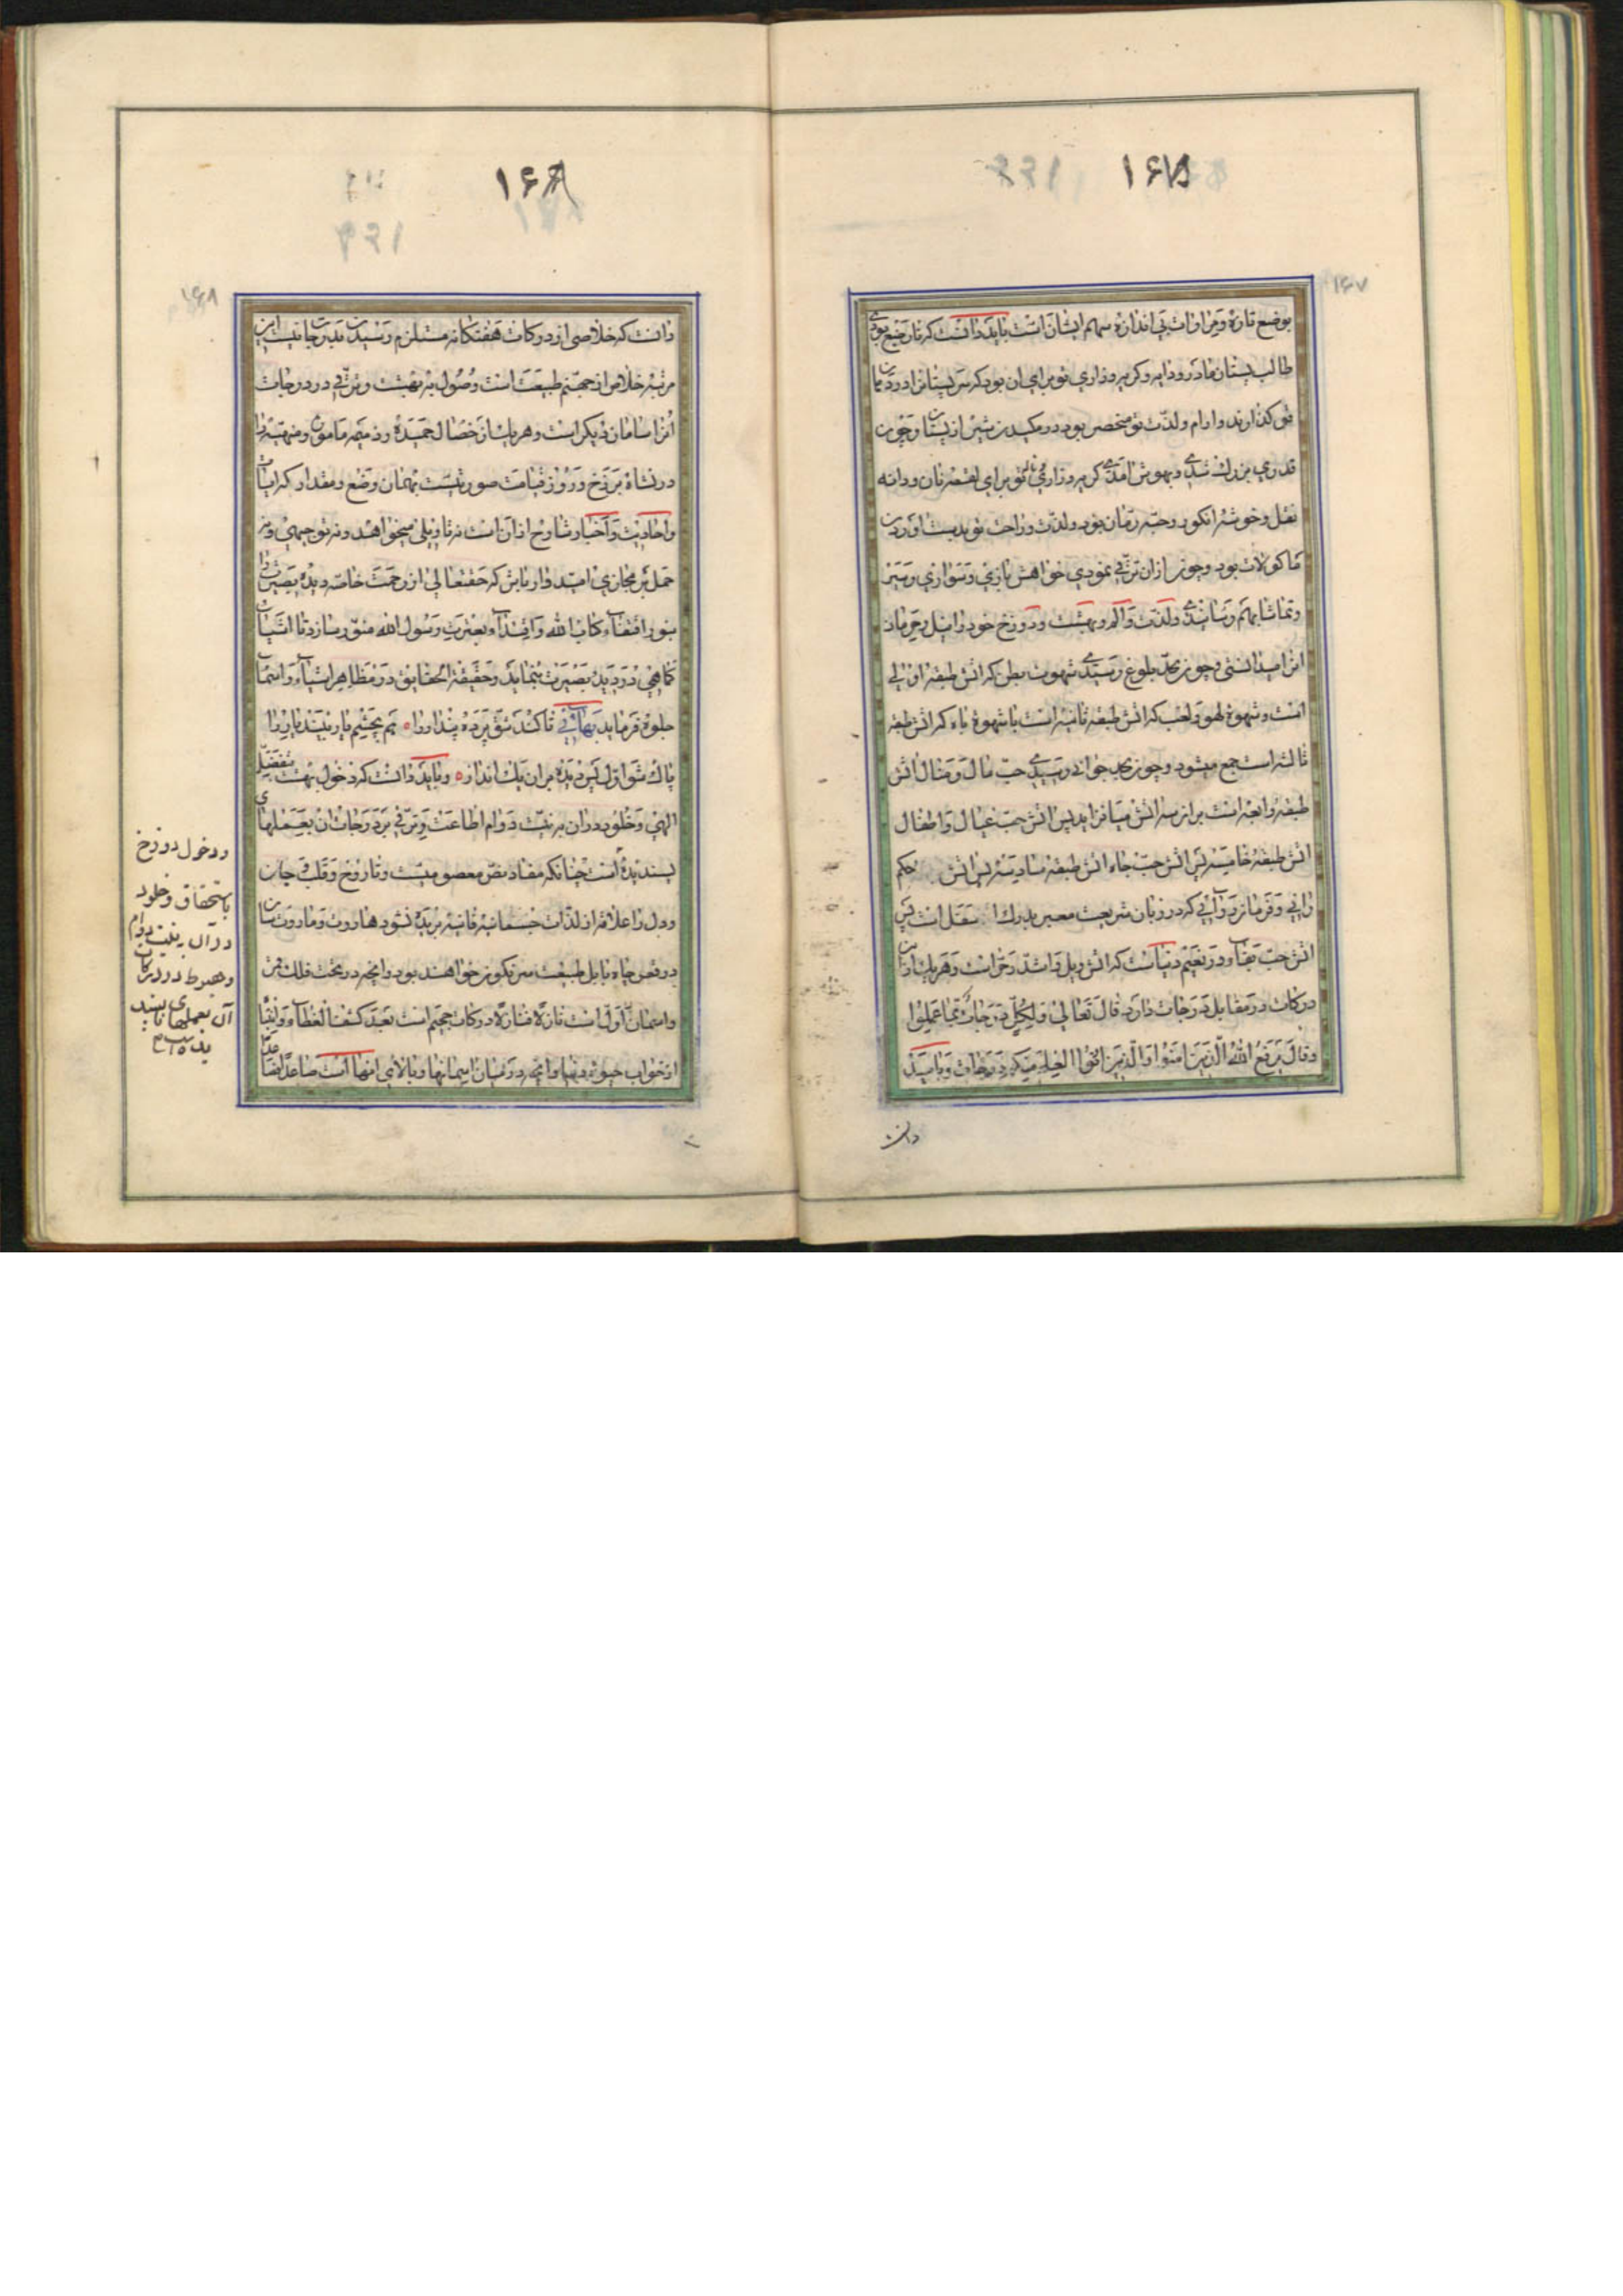 ۱۶۷
۱۶۷
بوضع تازه و مرارات بی اندازه سهام ایشان است باید دانست که تا رضیع بودی
طالب پستان مادر و دایه و گریه و زاری تو برای آن بود که سر پستانرا در دهان
تو گذارند و آرام و لذت تو منحصر بود در مکیدن شیر از پستان و چون
قدری بزرگ شدی و بهوش آمدی گریه و زاری تو برای لقمه نان و دانه
نقل و خوشه انگور و حبه رمان بود و لذت و راحت تو بدست آوردن
ماکولات بود و چون از آن ترقی نمودی خواهش بازی و سواری و سیر
و تماشا بهم رسانیدی و لذت و الم و بهشت و دوزخ خود را نیل و حرمان
آنرا میدانستی و چون بحد بلوغ رسیدی شهوت بطن که آتش طبقه اولی
است و شهوة لهو و لعب که آتش طبقه ثانیه است با شهوة باه که آتش طبقه
ثالثه است جمع میشود و چون بحد جوانی رسیدی حب مال و منال آتش
طبقه رابعه است بر آن سه آتش میافزاید پس آتش حب عیال و اطفال
آتش طبقه خامسه پس آتش حب جاه آتش طبقه سادسه پس آتش حکم
رانی و فرمانروایی که در زبان شریعت معبر بدرک اسفل است پس
آتش حب بقاء در نعیم دنیاست که آتش ویل و اشد حر است و هر یک از این
درکات در مقابل درجات دارد قال تعالی و لکل درجات مما عملوا
و قال یرفع الله الذین آمنوا والذین اوتوا العلم منکم درجات و باید
دانست
۱۶۸
۱۶۸
دانست که خلاصی از درکات هفتکانه مستلزم رسیدن بدرجات نیست این
مرتبه خلاص از جهنم طبیعت است وصول به بهشت و ترقی در درجات
آنرا سامان دیگر است و هر یک از خصال حمیده و ذمیمه مأمور و منهیه را
در نشاة برزخ و روز قیامت صوریست بهمان وضع و مقدار که آیات
و احادیث و اخبار شارح از آن است نه تاویلی میخواهند و نه توجیهی و نه
حمل بر مجازی امیدوار باش که حقتعالی از رحمت خاصه دیده بصیرت را
بنور اقتفاء کتاب الله و اقتداء بعترت رسول الله منور سازد تا اشیا
کماهی در دیده بصیرت بنماید و حقیقة الحقایق در مظاهر اشیاء و اسماء
جلوه فرماید بهائی تا کند شق پرده پندار را ۰ هم بچشم یار بیند یار را
پاک شو اول پس دیده بر آن پاک انداز ۰ و باید دانست که دخول بهشت بتفضل
الهی و خلود در آن به نیت دوام اطاعت و ترقی بر درجات آن بعملهای
پسندیده است چنانکه مفاد نص معصومیست و تا روح و قلب و جان
و دل را علاقه از لذات جسمانیه فانیه بریده نشود هاروت و ماروت سان
در قعر چاه بابل طبیعت سرنگون خواهند بود و آنچه در تحت فلک قمر
و آسمان اول است تازه فتازه درکات جحیم است بعد کشف الغطاء و
از خواب حیوة دنیا و آنچه در میان آسمانها و بالای آنها است صاعدا
و دخول دوزخ
باستحقاق و خلود
در آن به نیت دوام
و هبوط در درکات
آن بعملهای ناپسند